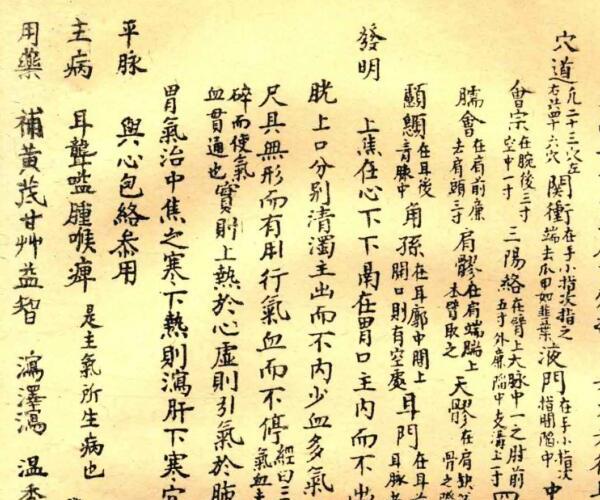 穴道凡二十三穴左右共四十六穴關衝在手小指次指之端去爪甲如韭葉液門在手小指次指間陷中中
會宗在腕後三寸空中一寸三陽絡在臂上大脉中一之肘前五寸外廉陷中支溝上一寸四
臑會在肩前廉去肩頭三寸肩髎在肩端臑上本臂取之天髎在肩缺盆骨之
顱顖在耳後青脉中角孫在耳廓中間上開口則有空處耳門在耳前
發明上焦在心下下鬲在胃口主內而不出
胱上口分别清濁主出而不内少血多氣
尺具無形而有用行氣血而不停經曰三氣血
碎而使氣血貫通也實則上熱於心虛則引氣於肺
胃氣治中焦之寒下熱則瀉肝下寒
平脉與心包絡叅用
主病耳聾嗌腫喉痺是主氣所生病也
用藥補黃茂甘艸益智瀉澤瀉温